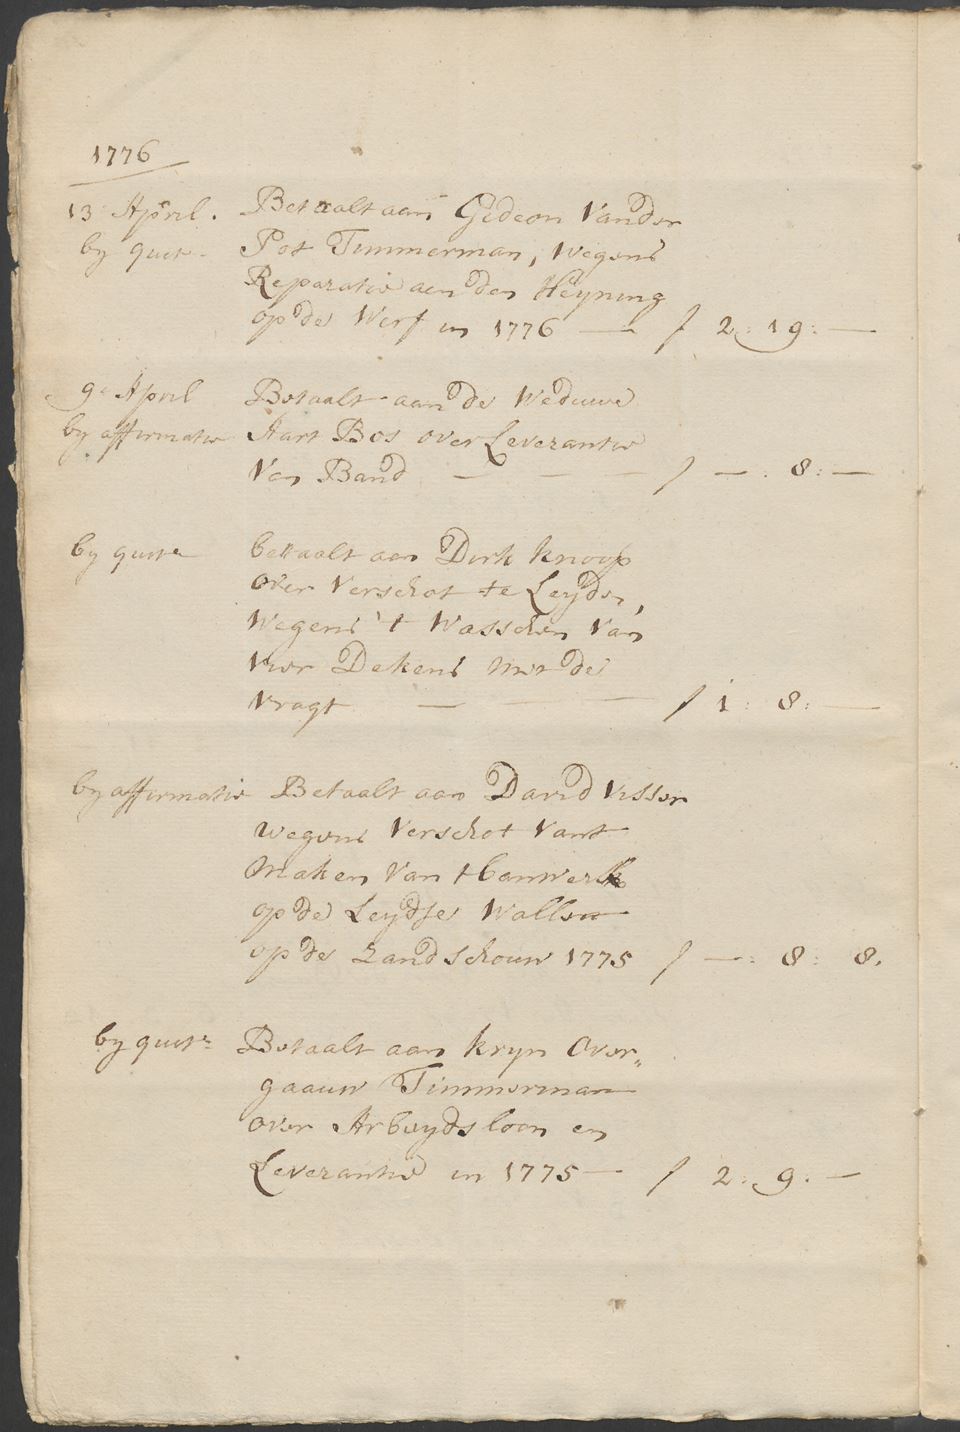 1776
13 April. Betaalt aan Gideon Vander
by quite. Pot Timmerman, Wegens
Reparatie aen den Heyning
op de Werf in 1776 — ƒ 2: 19: —
9e April Betaalt aan de Weduwe
by affirmatie Aart Bos over Leverantie
Van Band — — — ƒ —: 8: —
by quite betaalt aan Dirk Knoop
over Verschot te Leijden,
Wegens 't Wasschen Van
vier Dekens met de
Vragt — — — ƒ 1: 8: —
by affirmatie Betaalt aan David Visser
wegens Verschot Vant
Maken Van t
op de Leijdse Wallen
op de Zandschouw 1775 ƒ —: 8: 8.
by quite Betaalt aan Kryn Over„
gaauw Timmerman
over Arbeydsloon en
Leverantie in 1775 — ƒ 2: 9. —